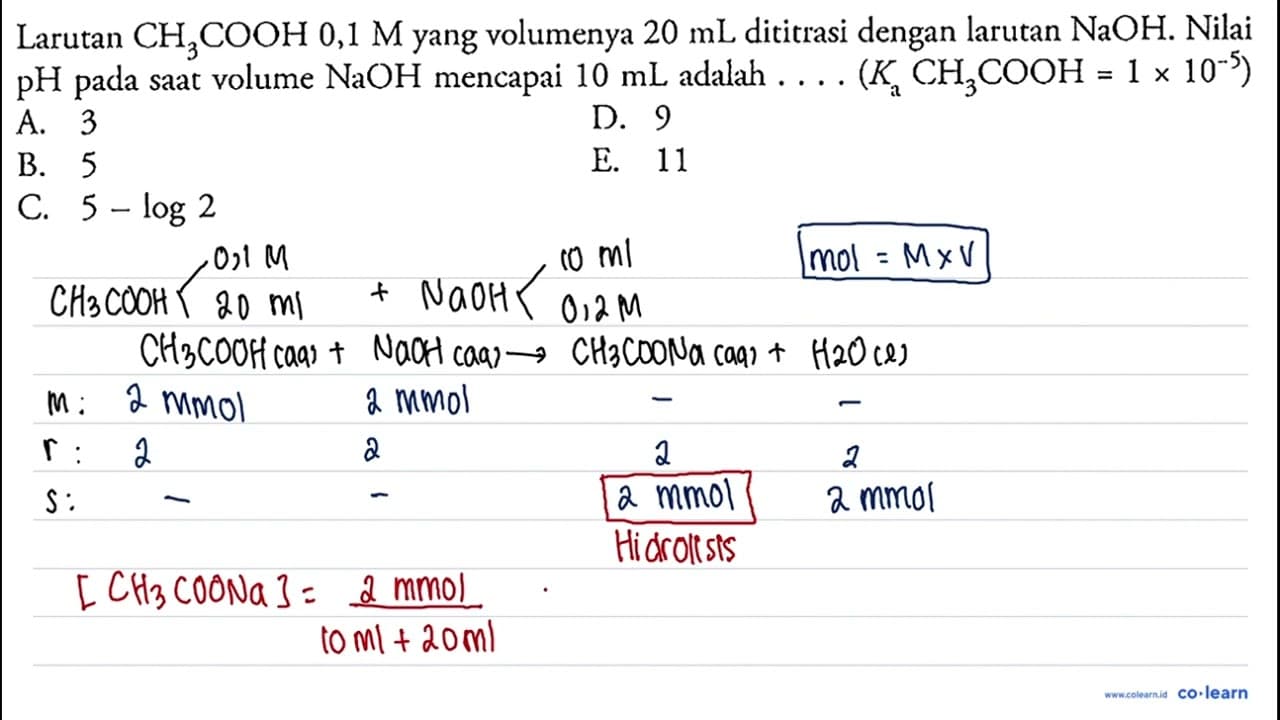 Larutan CH₃COOH 0,1 M yang volumenya 20 mL dititrasi dengan larutan NaOH. Nilai
pH pada saat volume NaOH mencapai 10 mL adalah . . . . (Kₐ CH₃COOH = 1 × 10⁻⁵)
A. 3
B. 5
C. 5 – log 2
D. 9
E. 11
CH3COOH < 0,1 M 20 ml + NaOH < 10 ml 0,2 M
mol = M x V
CH3COOH (aq) + NaOH (aq) → CH3COONa (aq) + H2O (l)
m : 2 mmol 2 mmol – –
r : 2 2 2 2
s : – – 2 mmol 2 mmol
Hidrolisis
[ CH3COONa ] = 2 mmol
10 ml + 20 ml
www.colearn.id co·learn